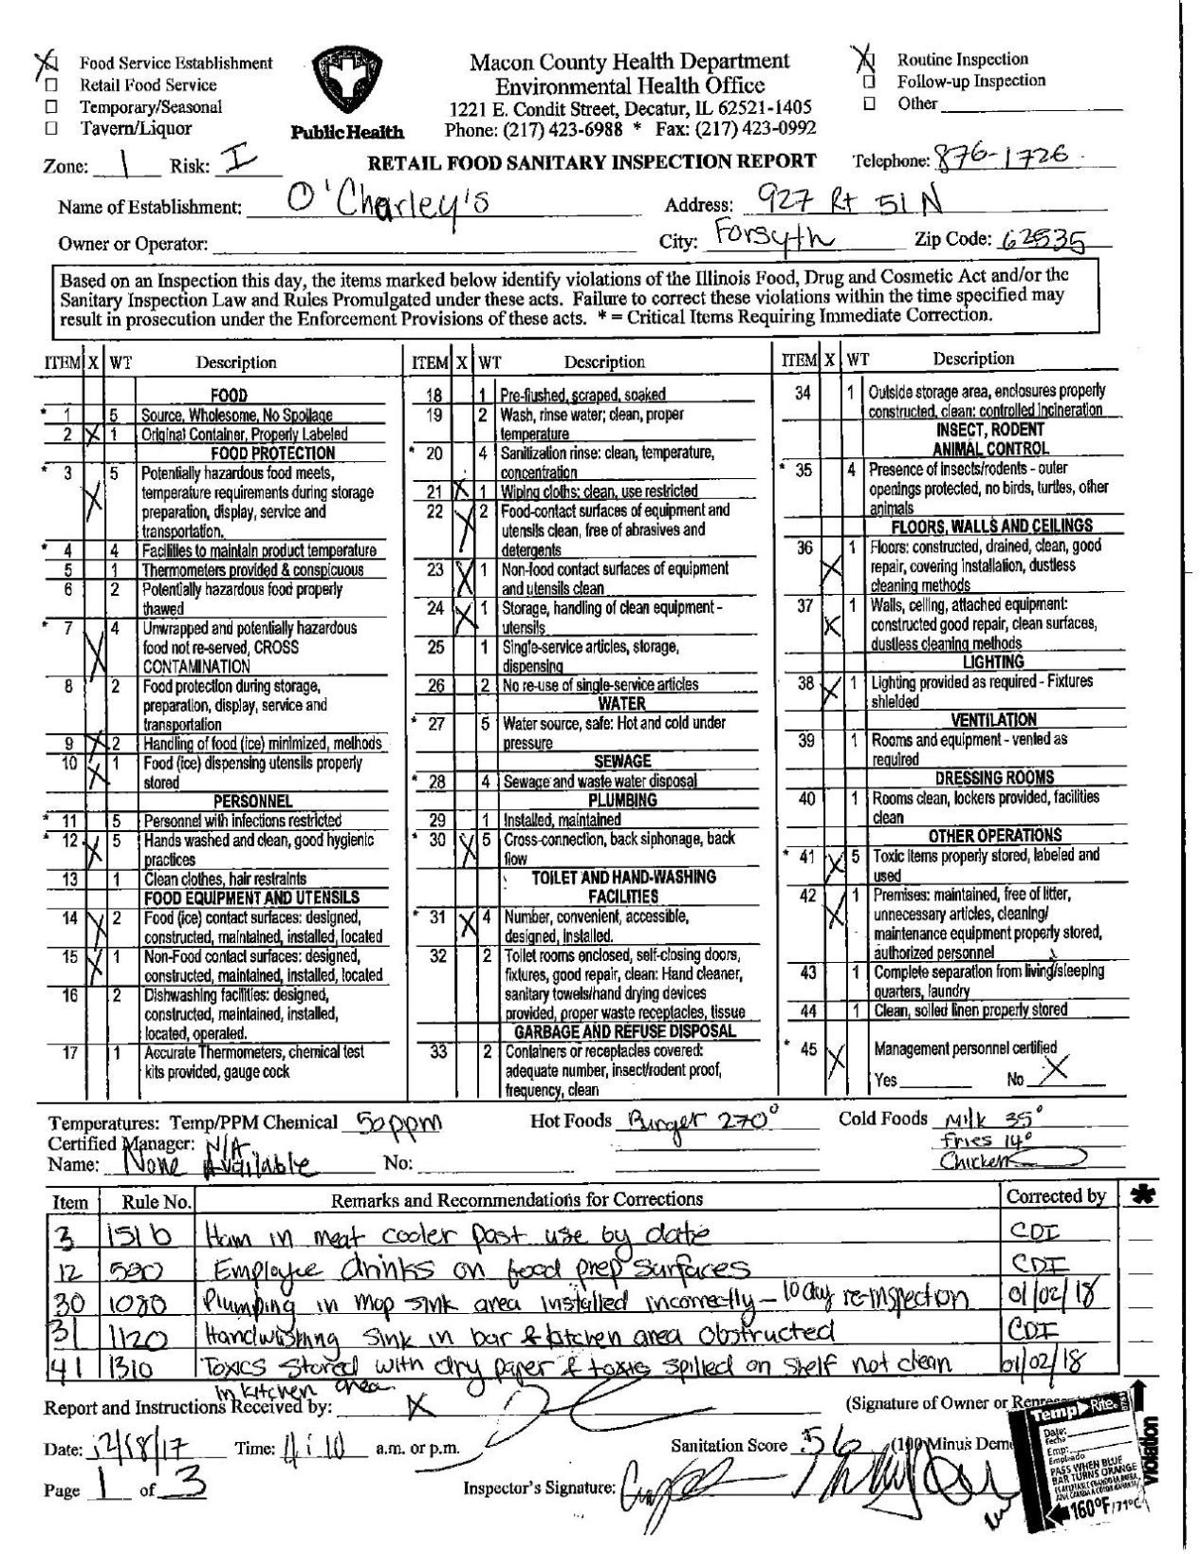 Food Service Establishment
Retail Food Service
Temporary/Seasonal
Tavern/Liquor
Public Health
Macon County Health Department
Environmental Health Office
1221 E. Condit Street, Decatur, IL 62521-1405
Phone: (217) 423-6988 * Fax: (217) 423-0992
Routine Inspection
Follow-up Inspection
Other
Zone: 1 Risk: I RETAIL FOOD SANITARY INSPECTION REPORT Telephone: 876-1726
Name of Establishment: O'Charley's Address: 927 Rt 51 N
Owner or Operator: City: Forsyth Zip Code: 62535
Based on an Inspection this day, the items marked below identify violations of the Illinois Food, Drug and Cosmetic Act and/or the
Sanitary Inspection Law and Rules Promulgated under these acts. Failure to correct these violations within the time specified may
result in prosecution under the Enforcement Provisions of these acts. * = Critical Items Requiring Immediate Correction.
ITEM X WT Description
FOOD
* 1 5 Source, Wholesome, No Spoilage
2 X 1 Original Container, Properly Labeled
FOOD PROTECTION
* 3 X 5 Potentially hazardous food meets,
temperature requirements during storage
preparation, display, service and
transportation.
* 4 4 Facilities to maintain product temperature
5 1 Thermometers provided & conspicuous
6 2 Potentially hazardous food properly
thawed
* 7 X 4 Unwrapped and potentially hazardous
food not re-served, CROSS
CONTAMINATION
8 2 Food protection during storage,
preparation, display, service and
transportation
9 X 2 Handling of food (ice) minimized, methods
10 X 1 Food (ice) dispensing utensils properly
stored
PERSONNEL
* 11 5 Personnel with infections restricted
* 12 X 5 Hands washed and clean, good hygienic
practices
13 1 Clean clothes, hair restraints
FOOD EQUIPMENT AND UTENSILS
14 X 2 Food (ice) contact surfaces: designed,
constructed, maintained, installed, located
15 X 1 Non-Food contact surfaces: designed,
constructed, maintained, installed, located
16 2 Dishwashing facilities: designed,
constructed, maintained, installed,
located, operated.
17 1 Accurate Thermometers, chemical test
kits provided, gauge cock
ITEM X WT Description
18 1 Pre-flushed, scraped, soaked
19 2 Wash, rinse water; clean, proper
temperature
* 20 4 Sanitization rinse: clean, temperature,
concentration
21 X 1 Wiping cloths: clean, use restricted
22 X 2 Food-contact surfaces of equipment and
utensils clean, free of abrasives and
detergents
23 X 1 Non-food contact surfaces of equipment
and utensils clean
24 X 1 Storage, handling of clean equipment -
utensils
25 1 Single-service articles, storage,
dispensing
26 2 No re-use of single-service articles
WATER
* 27 5 Water source, safe: Hot and cold under
pressure
SEWAGE
* 28 4 Sewage and waste water disposal
PLUMBING
29 1 Installed, maintained
* 30 X 5 Cross-connection, back siphonage, back
flow
TOILET AND HAND-WASHING
FACILITIES
* 31 X 4 Number, convenient, accessible,
designed, installed.
32 2 Toilet rooms enclosed, self-closing doors,
fixtures, good repair, clean: Hand cleaner,
sanitary towels/hand drying devices
provided, proper waste receptacles, tissue
GARBAGE AND REFUSE DISPOSAL
33 2 Containers or receptacles covered:
adequate number, insect/rodent proof,
frequency, clean
ITEM X WT Description
34 1 Outside storage area, enclosures properly
constructed, clean: controlled incineration
INSECT, RODENT
ANIMAL CONTROL
* 35 4 Presence of insects/rodents - outer
openings protected, no birds, turtles, other
animals
FLOORS, WALLS AND CEILINGS
36 X 1 Floors: constructed, drained, clean, good
repair, covering installation, dustless
cleaning methods
37 X 1 Walls, ceiling, attached equipment:
constructed good repair, clean surfaces,
dustless cleaning methods
LIGHTING
38 X 1 Lighting provided as required - Fixtures
shielded
VENTILATION
39 1 Rooms and equipment - vented as
required
DRESSING ROOMS
40 1 Rooms clean, lockers provided, facilities
clean
OTHER OPERATIONS
* 41 X 5 Toxic items properly stored, labeled and
used
42 X 1 Premises: maintained, free of litter,
unnecessary articles, cleaning/
maintenance equipment properly stored,
authorized personnel
43 1 Complete separation from living/sleeping
quarters, laundry
44 1 Clean, soiled linen properly stored
* 45 X Management personnel certified
Yes No X
Temperatures: Temp/PPM Chemical 50 ppm Hot Foods Burger 270° Cold Foods Milk 35°
Fries 14°
Chicken
Certified Manager: N/A
Name: None Available No:
Item Rule No. Remarks and Recommendations for Corrections Corrected by *
3 151b Ham in meat cooler past use by date CDI
12 520 Employee drinks on food prep surfaces CDI
30 1080 Plumping in mop sink area installed incorrectly - 10 day re-inspection 01/02/18
31 1120 Handwishing sink in bar & kitchen area obstructed CDI
41 1310 Toxics stored with dry paper & toxic spilled on shelf not clean 01/02/18
in kitchen area
Report and Instructions Received by: X (Signature of Owner or
Date: 12/18/17 Time: 11:10 a.m. or p.m. Sanitation Score 56 (100 Minus
Page 1 of 3 Inspector's Signature:
Temp Rite
Date:
Fecha
Emp:
Empleado
PASS WHEN BLUE
BAR TURNS ORANGE
160°F/71°C
Violation